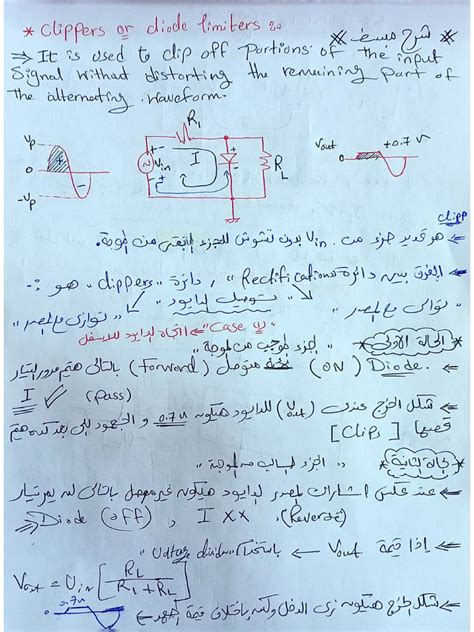 * Clippers or diode limiters :-
* شرح مبسط *
⇒ It is used to clip off portions of the input
Signal without distorting the remaining part of
the alternating waveform.
Vp
0
-Vp
+
-
R1
Vin
I
RL
Vout
+0.7 v
0
clipp
← هو قدير جزء من Vin بدون تشوش للجزء المتبقى من الموجة.
← الفرق بين دائرة "Rectifications", دائرة "clippers" هو :-
"توصيل الدايود"
"توالى مع المصدر"
"توازى مع المصدر"
"Case 1" ⇐ اتجاه الدايود للأسفل
* الحالة الأولى * "الجزء الموجب من الموجة"
← Diode (ON) متوصل (Forward) بالتالى هتم مرور التيار
I (Pass)
← شكل الخرج عندى (Vout) للدايود هيكون 0.7v و الجهود اللى بعد كده هتم
قصها [Clips]
* الحالة الثانية * "الجزء السالب من الموجة"
← عند عكس اشارات المصدر الدايود هيكون غير موصل بالتالى لم يمر تيار
⇒ Diode (off), I XX, (Reverse)
← إذا قيمة Vout ← باستخدام "Voltage divider"
Vout = Vin [RL / R1 + RL]
← شكل الخرج هيكون زى الدخل ولكن باختلاف قيمة الجهد
0.7v
0